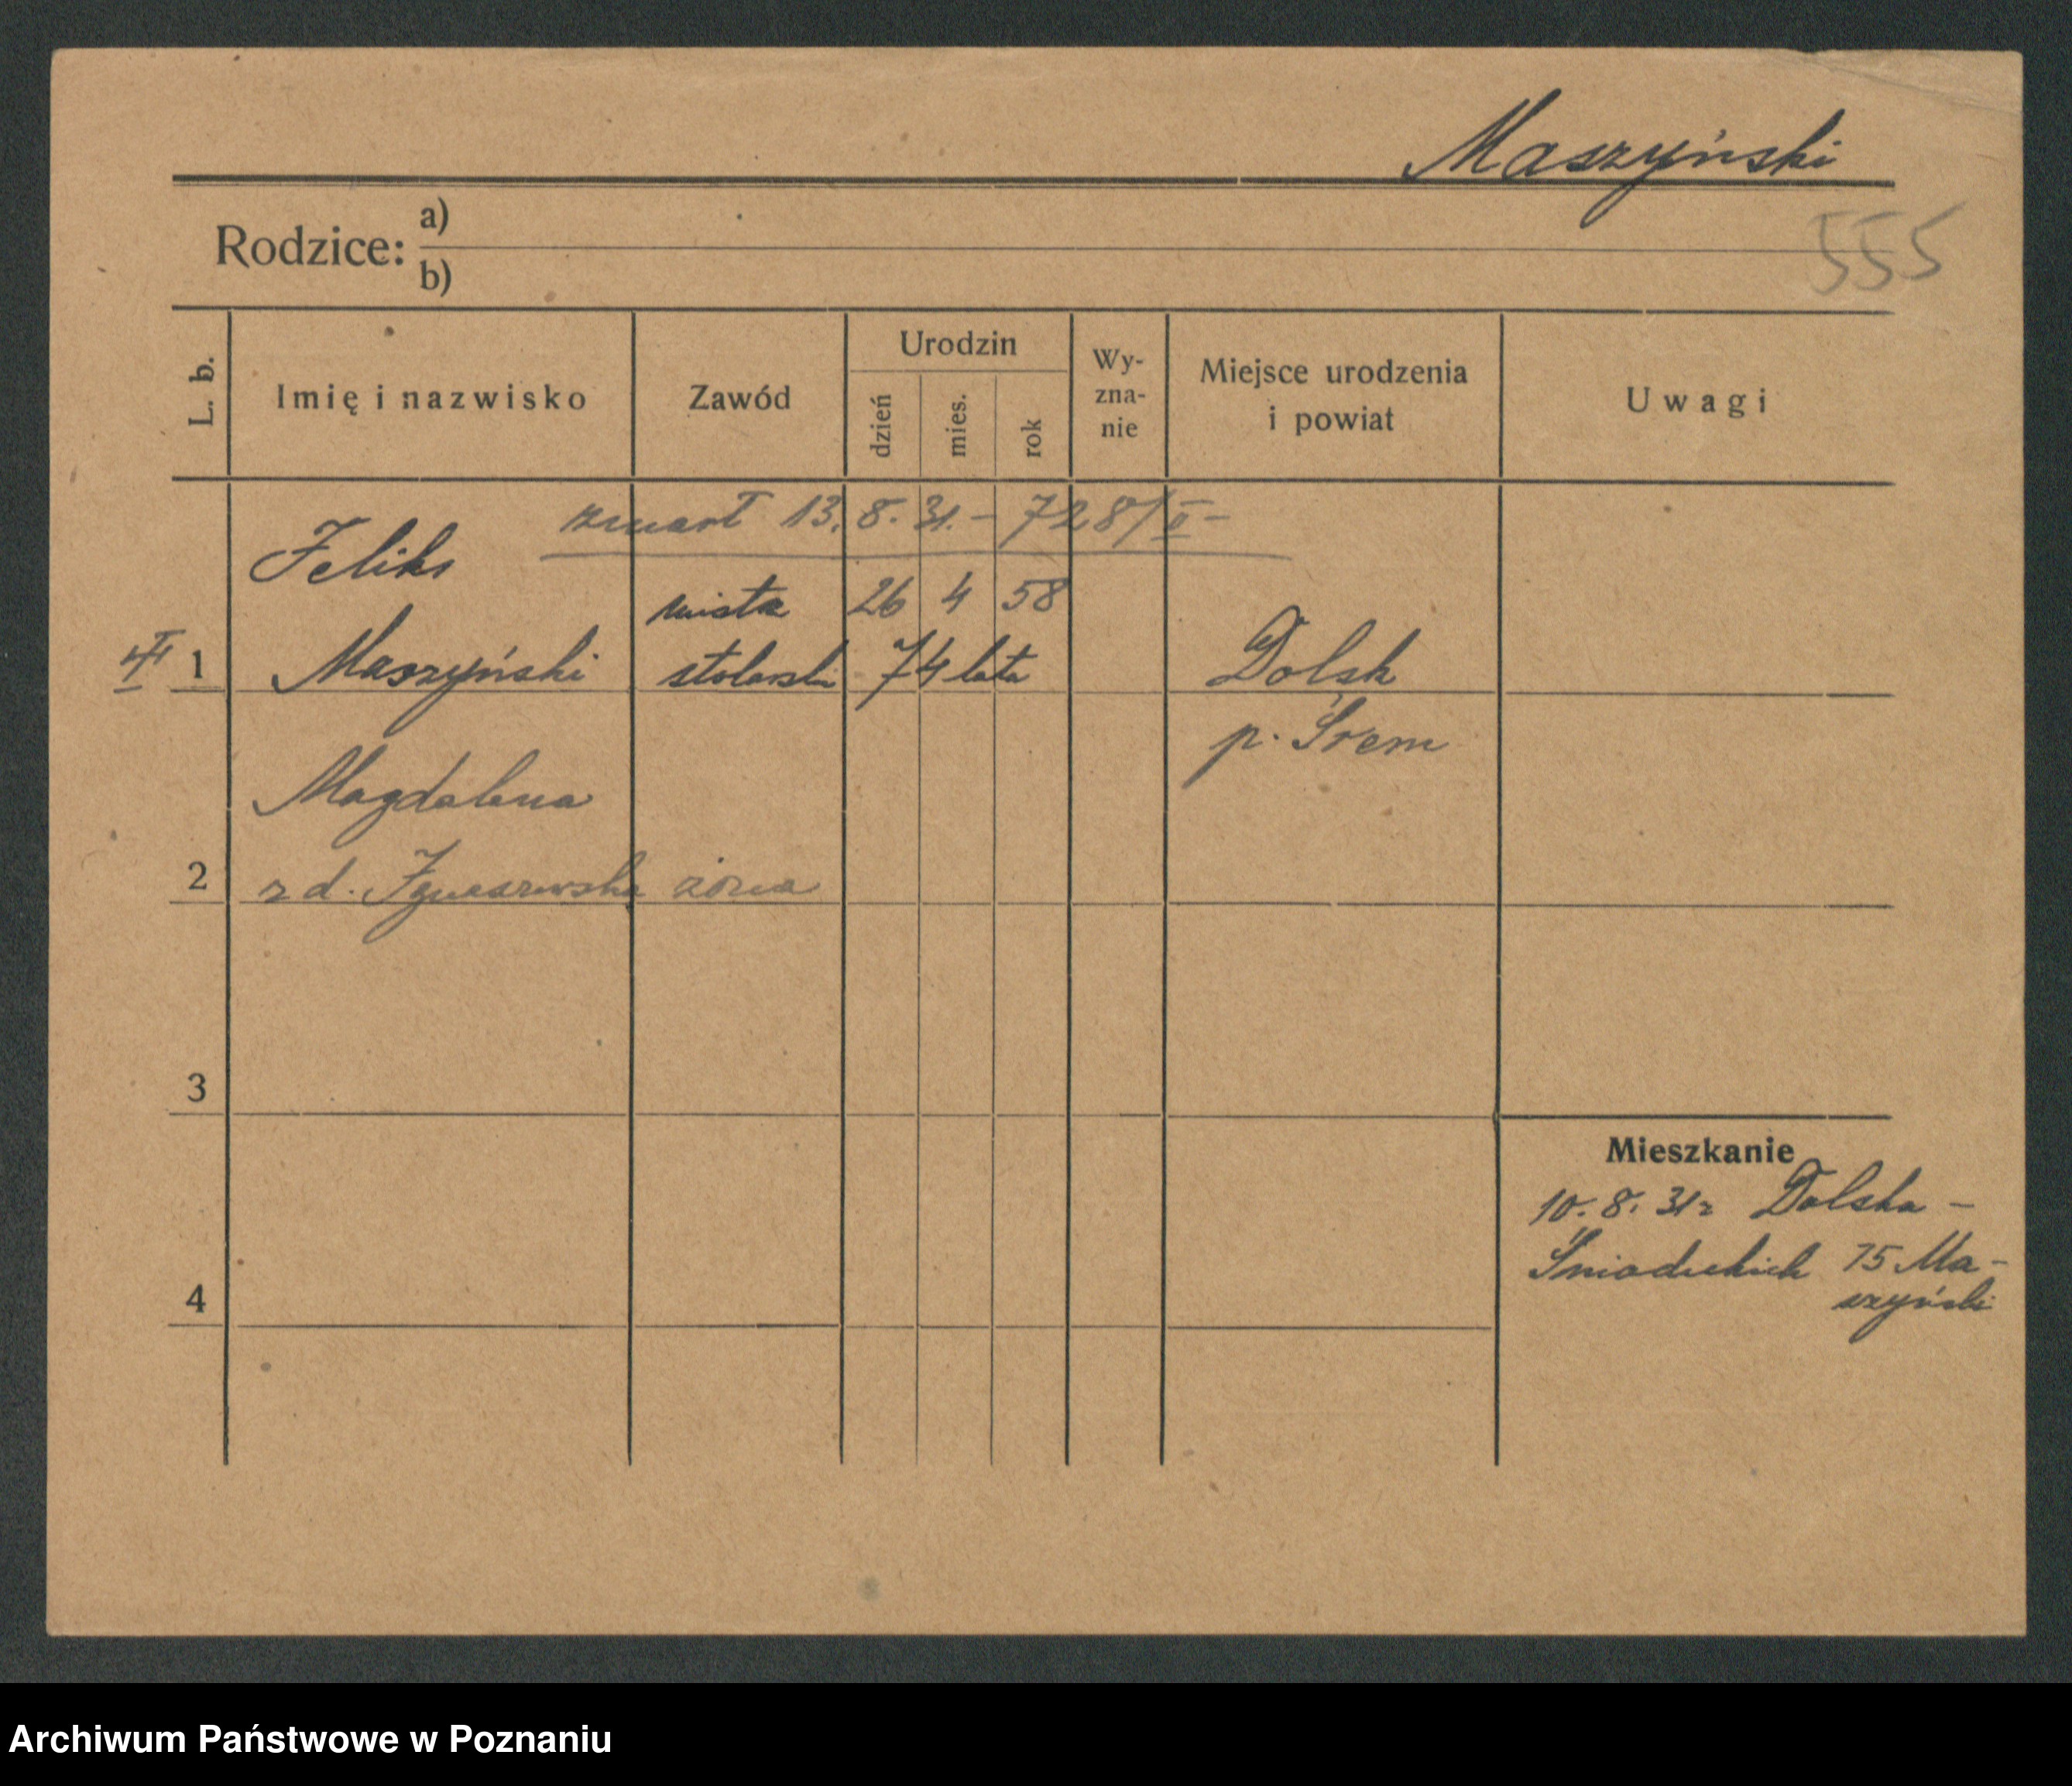 Maszyński
Rodzice: a)
b)
555
L. b.
Imię i nazwisko
Zawód
Urodzin
dzień
mies.
rok
Wy-
zna-
nie
Miejsce urodzenia
i powiat
Uwagi
zmarł 13. 8. 31. - 728/II -
Feliks
mistrz 26 4 58
1 Maszyński stolarski 74 lata Dolsk
p. Śrem
Magdalena
2 z d. Ignaszewska żona
3
Mieszkanie
10. 8. 31 z Dolska -
Śniadeckich 15 Ma-
szyński
4
Archiwum Państwowe w Poznaniu